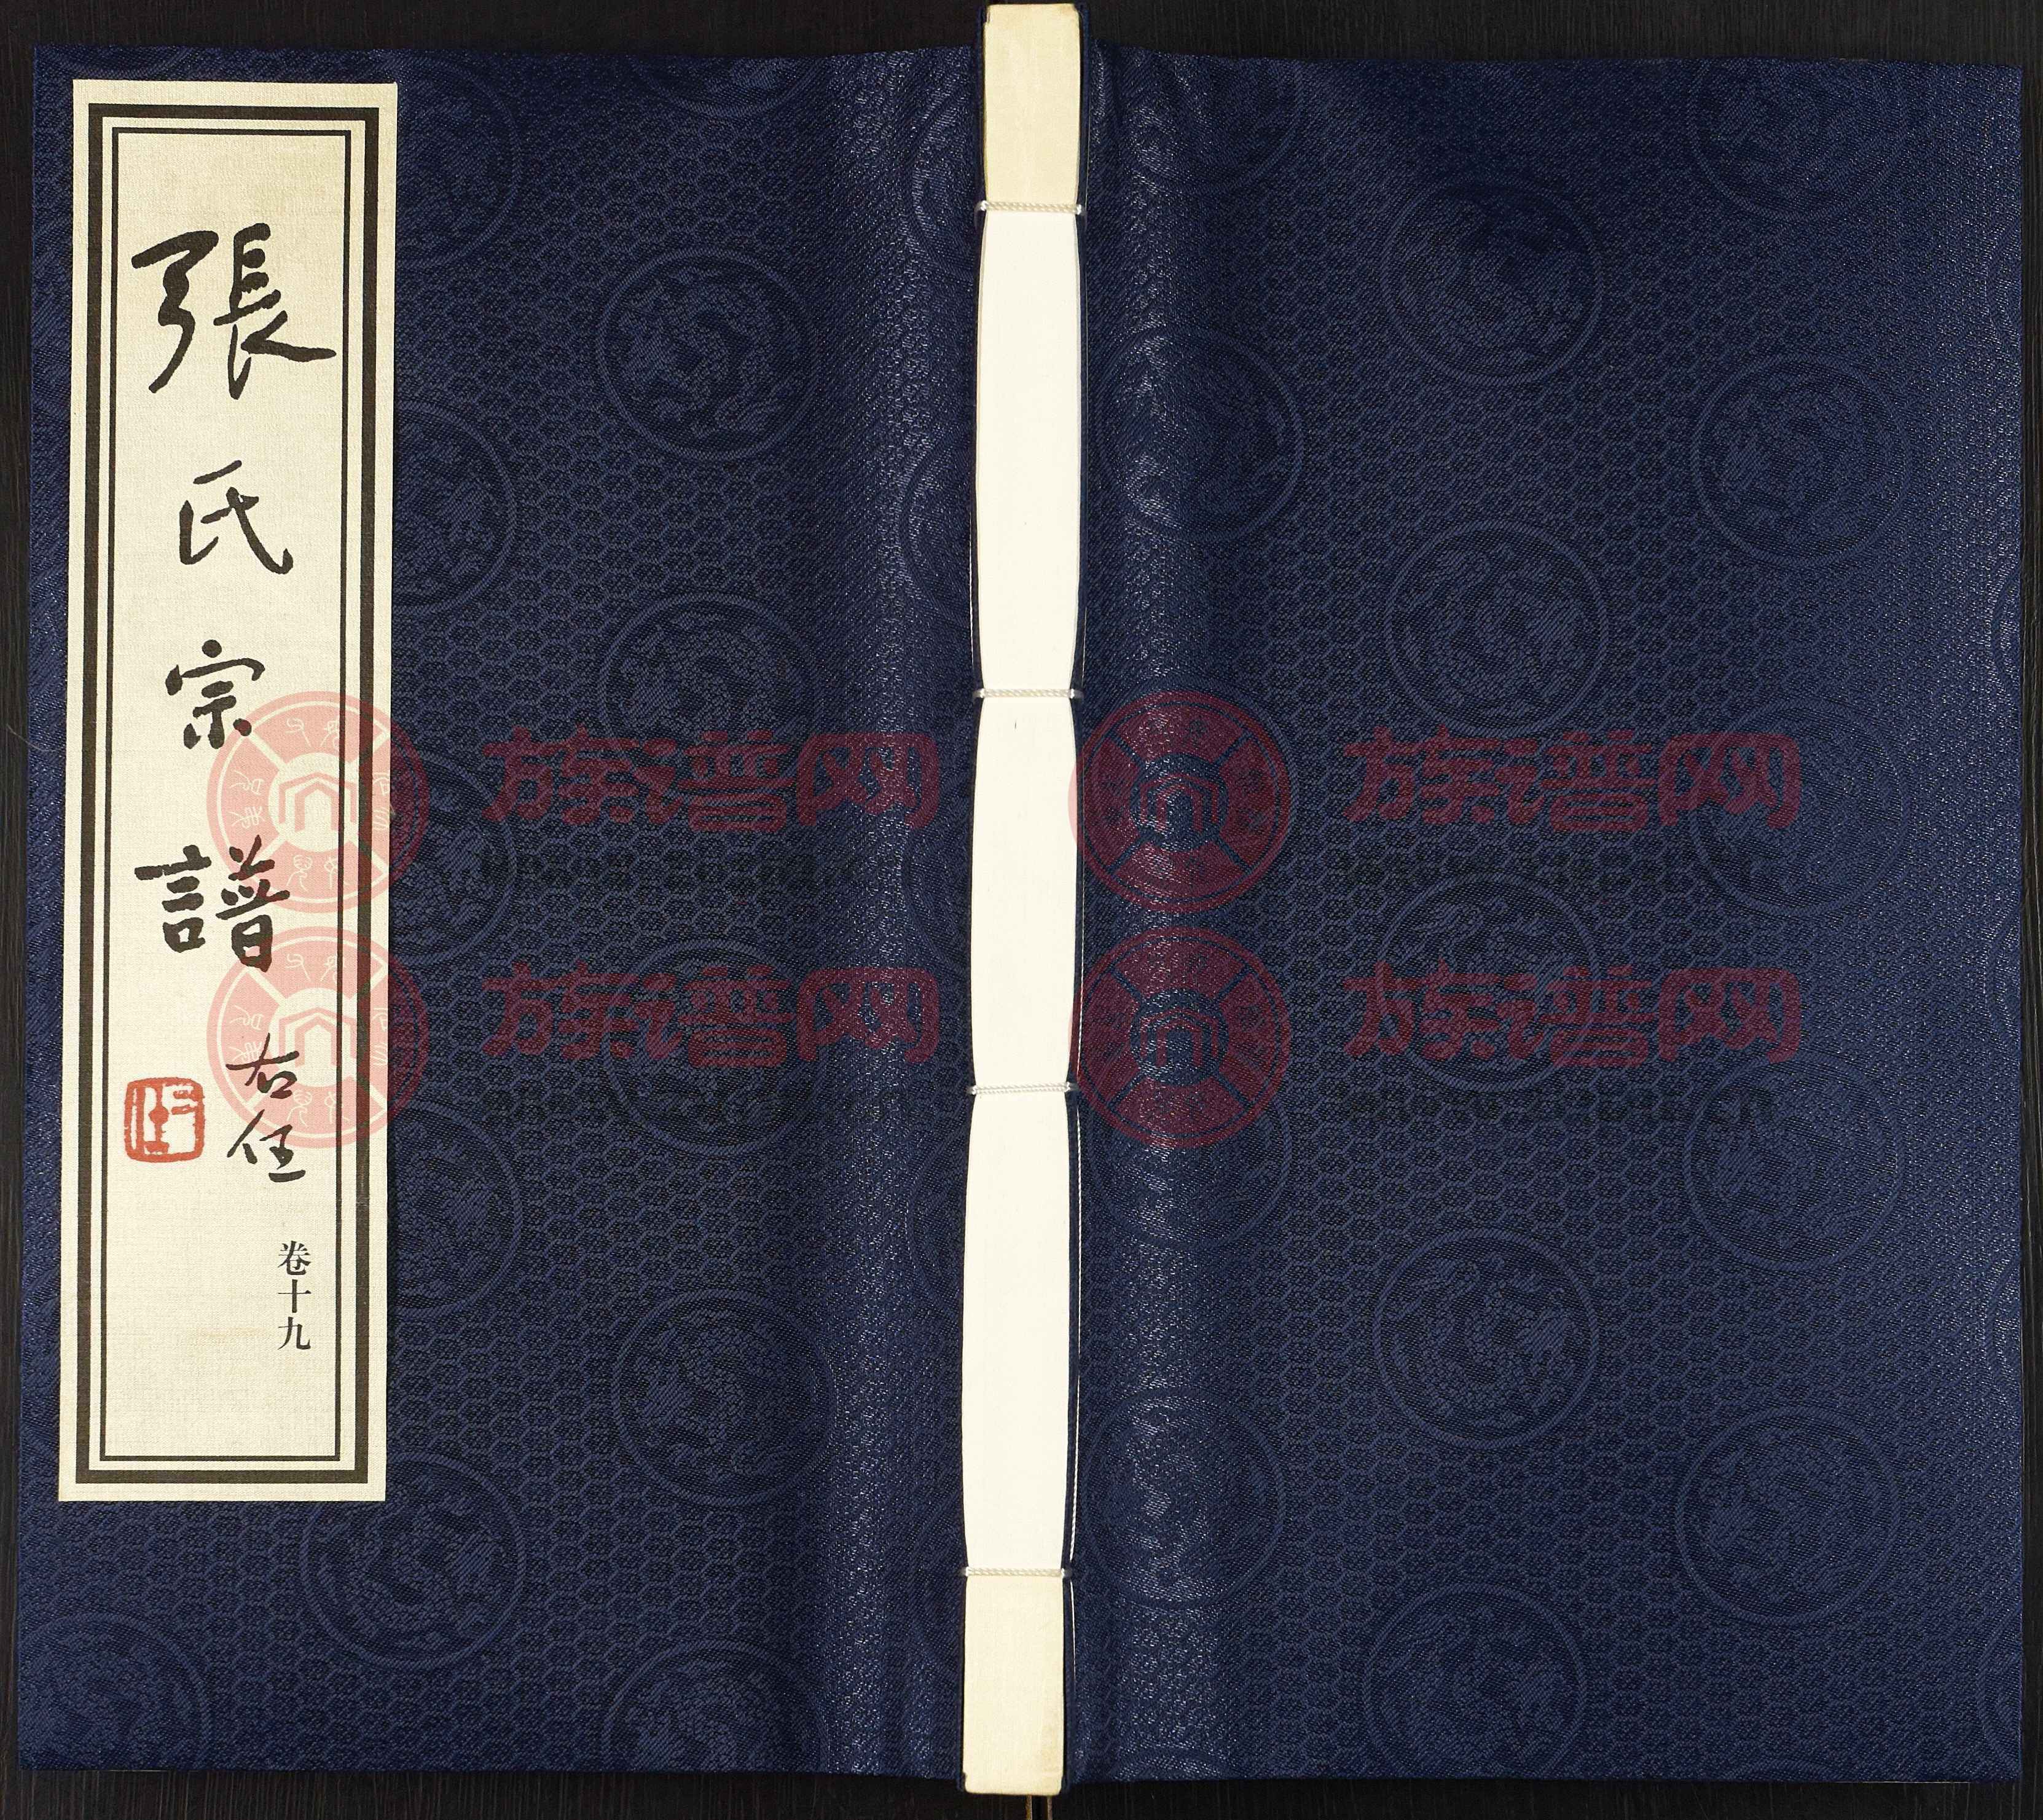 張氏宗譜
右任
卷十九
族谱网
族谱网
族谱网
族谱网